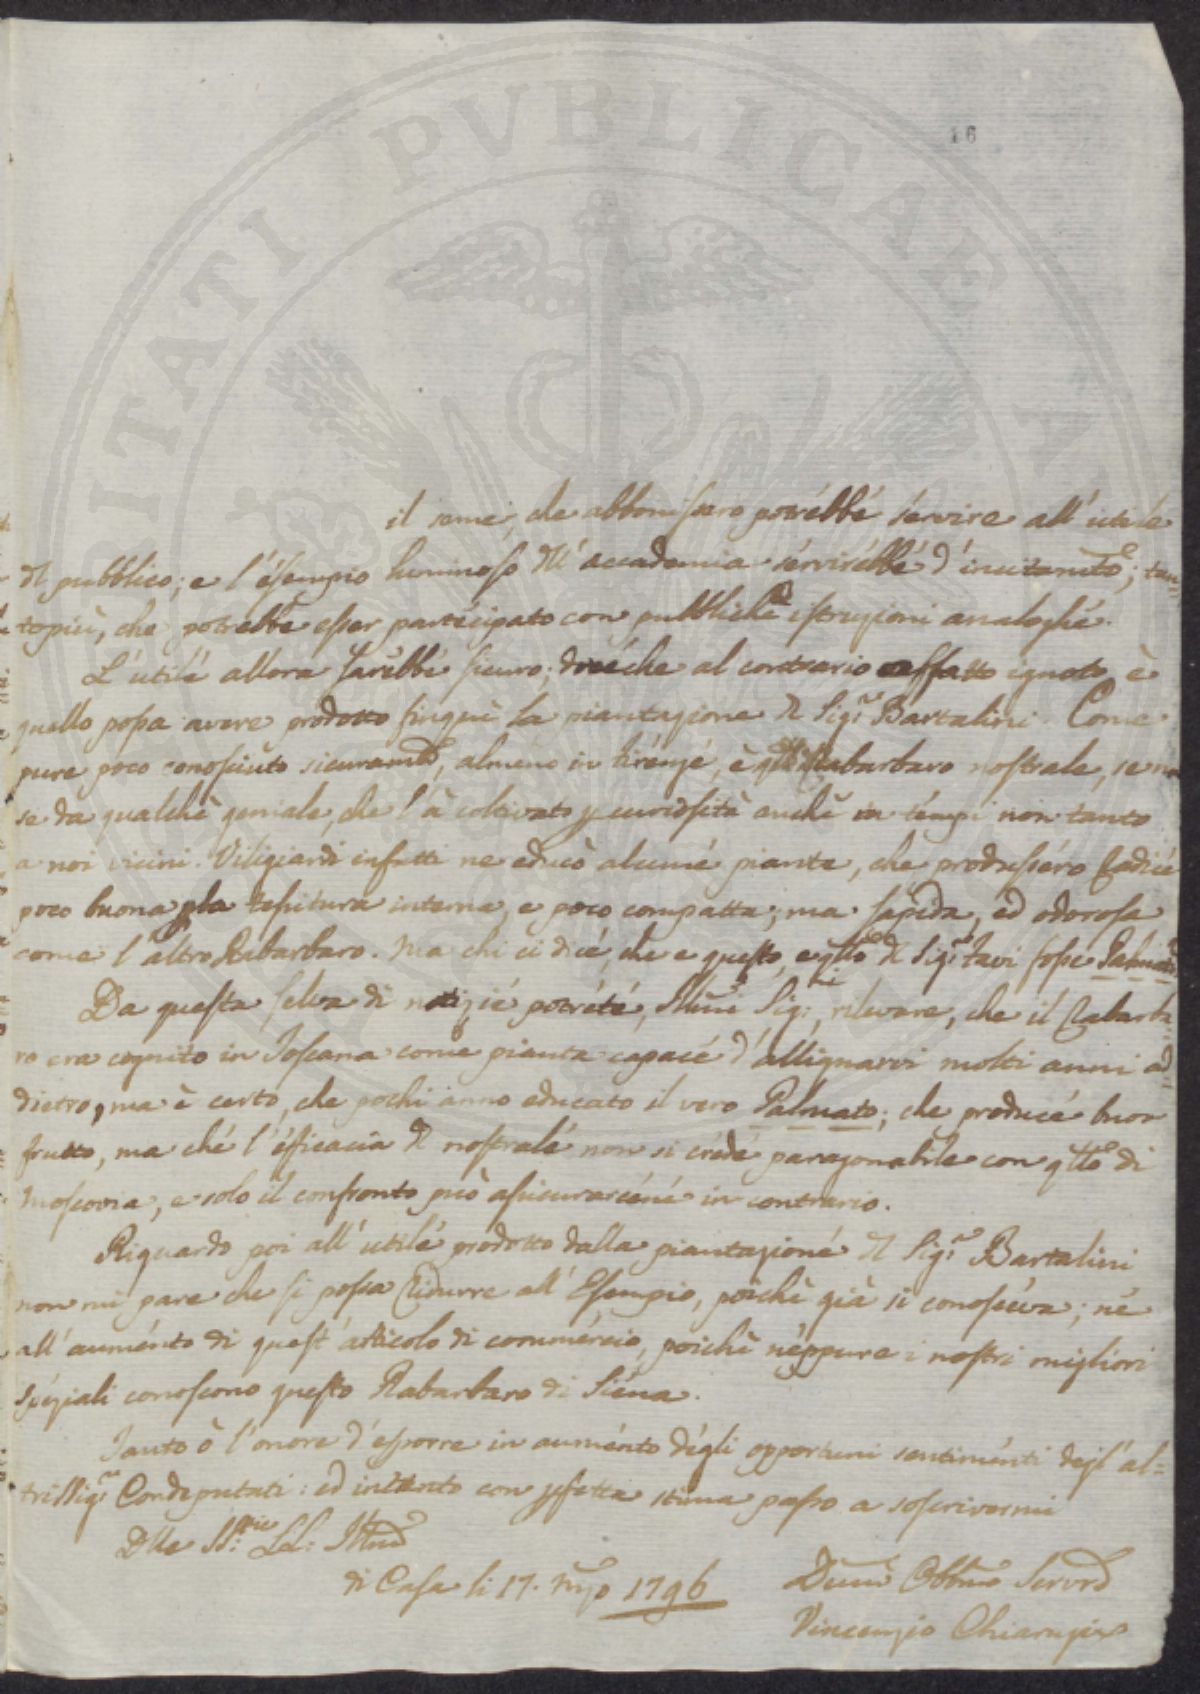 16
il seme, che abbonissero potrébbé servire all'utile
dl pubblico; e l'ésempio luminoso dll'accademia sérvirébbé d'incitamto; tan=
topiù, che potrebbe esser partécipato con pubbliche istruzioni analoghé.
L'utilé allora sarébbé sicuro; dovéche al contrario affatto ignoto è
quello possa avere prodotto finqui la piantazione dl Sigr Bartalini. Come
pure poco conosciuto sicuramte, almeno in Firénzé, è qllo Rabarbaro nostrale, se non
se da qualché geniale, che l'à coltivato p curiosità anché in témpi non tanto
a noi vicini. Viligiardi infatti ne educò alcuné piante, che produsséro Radicé
poco buona pla tessitura interna, e poco compatta; ma sapida, ed odorosa
come l'altro Rabarbaro. Ma chi ci dicé, che e questo, e qllo dl Sigr Tavi fosse Palmato?
Da questa selva di notizié potrété, Illmi Sigri, rilevare, che il Rabarba=
ro era cognito in Toscana come pianta capacé d'allignarvi molti anni ad=
dietro, ma è certo, che pochi anno educato il vero Palmato; che producé buon
frutto, ma ché l'éfficacia dl nostralé non si crédé paragonabile con qllo di
Moscovia, e solo il confronto può assicurarcéné in contrario.
Riguardo poi all'utilé prodotto dalla piantazioné dl Sigr Bartalini
non mi pare che si possa Ridurre all'Esempio, poiché già si conoscéva; né
all'auménto di quest'articolo di commércio, poiché néppure i nostri migliori
Spéziali conoscono questo Rabarbaro di Siéna.
Tanto ò l'onore d'esporre in auménto dégli opportuni sentiménti degl'al=
tri Sigri Condeputati: ed intanto con pfetta stima passo a soscrivermi
Dlle SS.rie LL: Illme
di Casa li 17. Mzo 1796
Devmo Obblmo Servre
Vincenzio Chiarugi